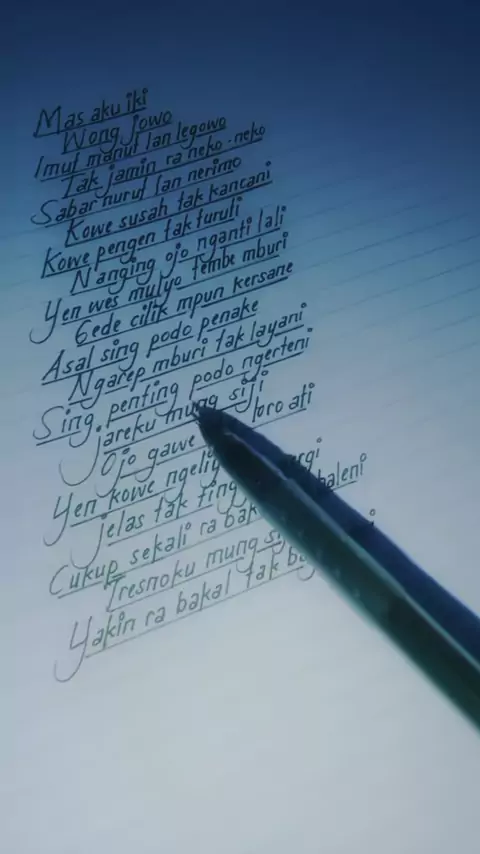 Mas aku iki
Wong jowo
Imut manut lan legowo
Tak jamin ra neko-neko
Sabar nurut lan nerimo
Kowe susah tak kancani
Kowe pengen tak turuti
Nanging ojo nganti lali
Yen wes mulyo tembe mburi
Gede cilik mpun kersane
Asal sing podo penake
Ngarep mburi tak layani
Sing penting podo ngerteni
Jareku mung siji
Ojo gawe loro ati
Yen kowe
jelas tak
Cukup sekali ra
Tresnoku mung
Yakin ra bakal tak